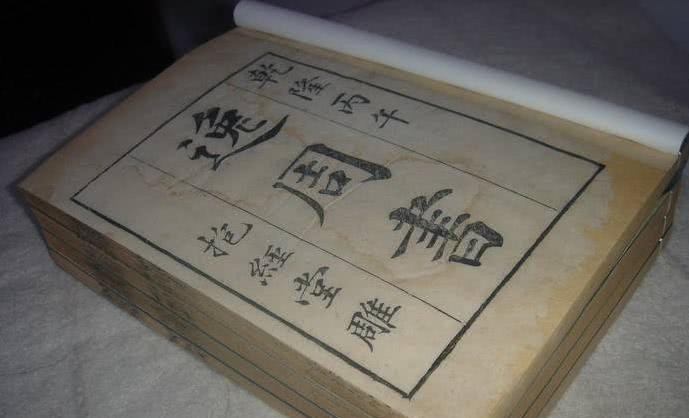 乾隆丙年
逸周書
抱經堂雕